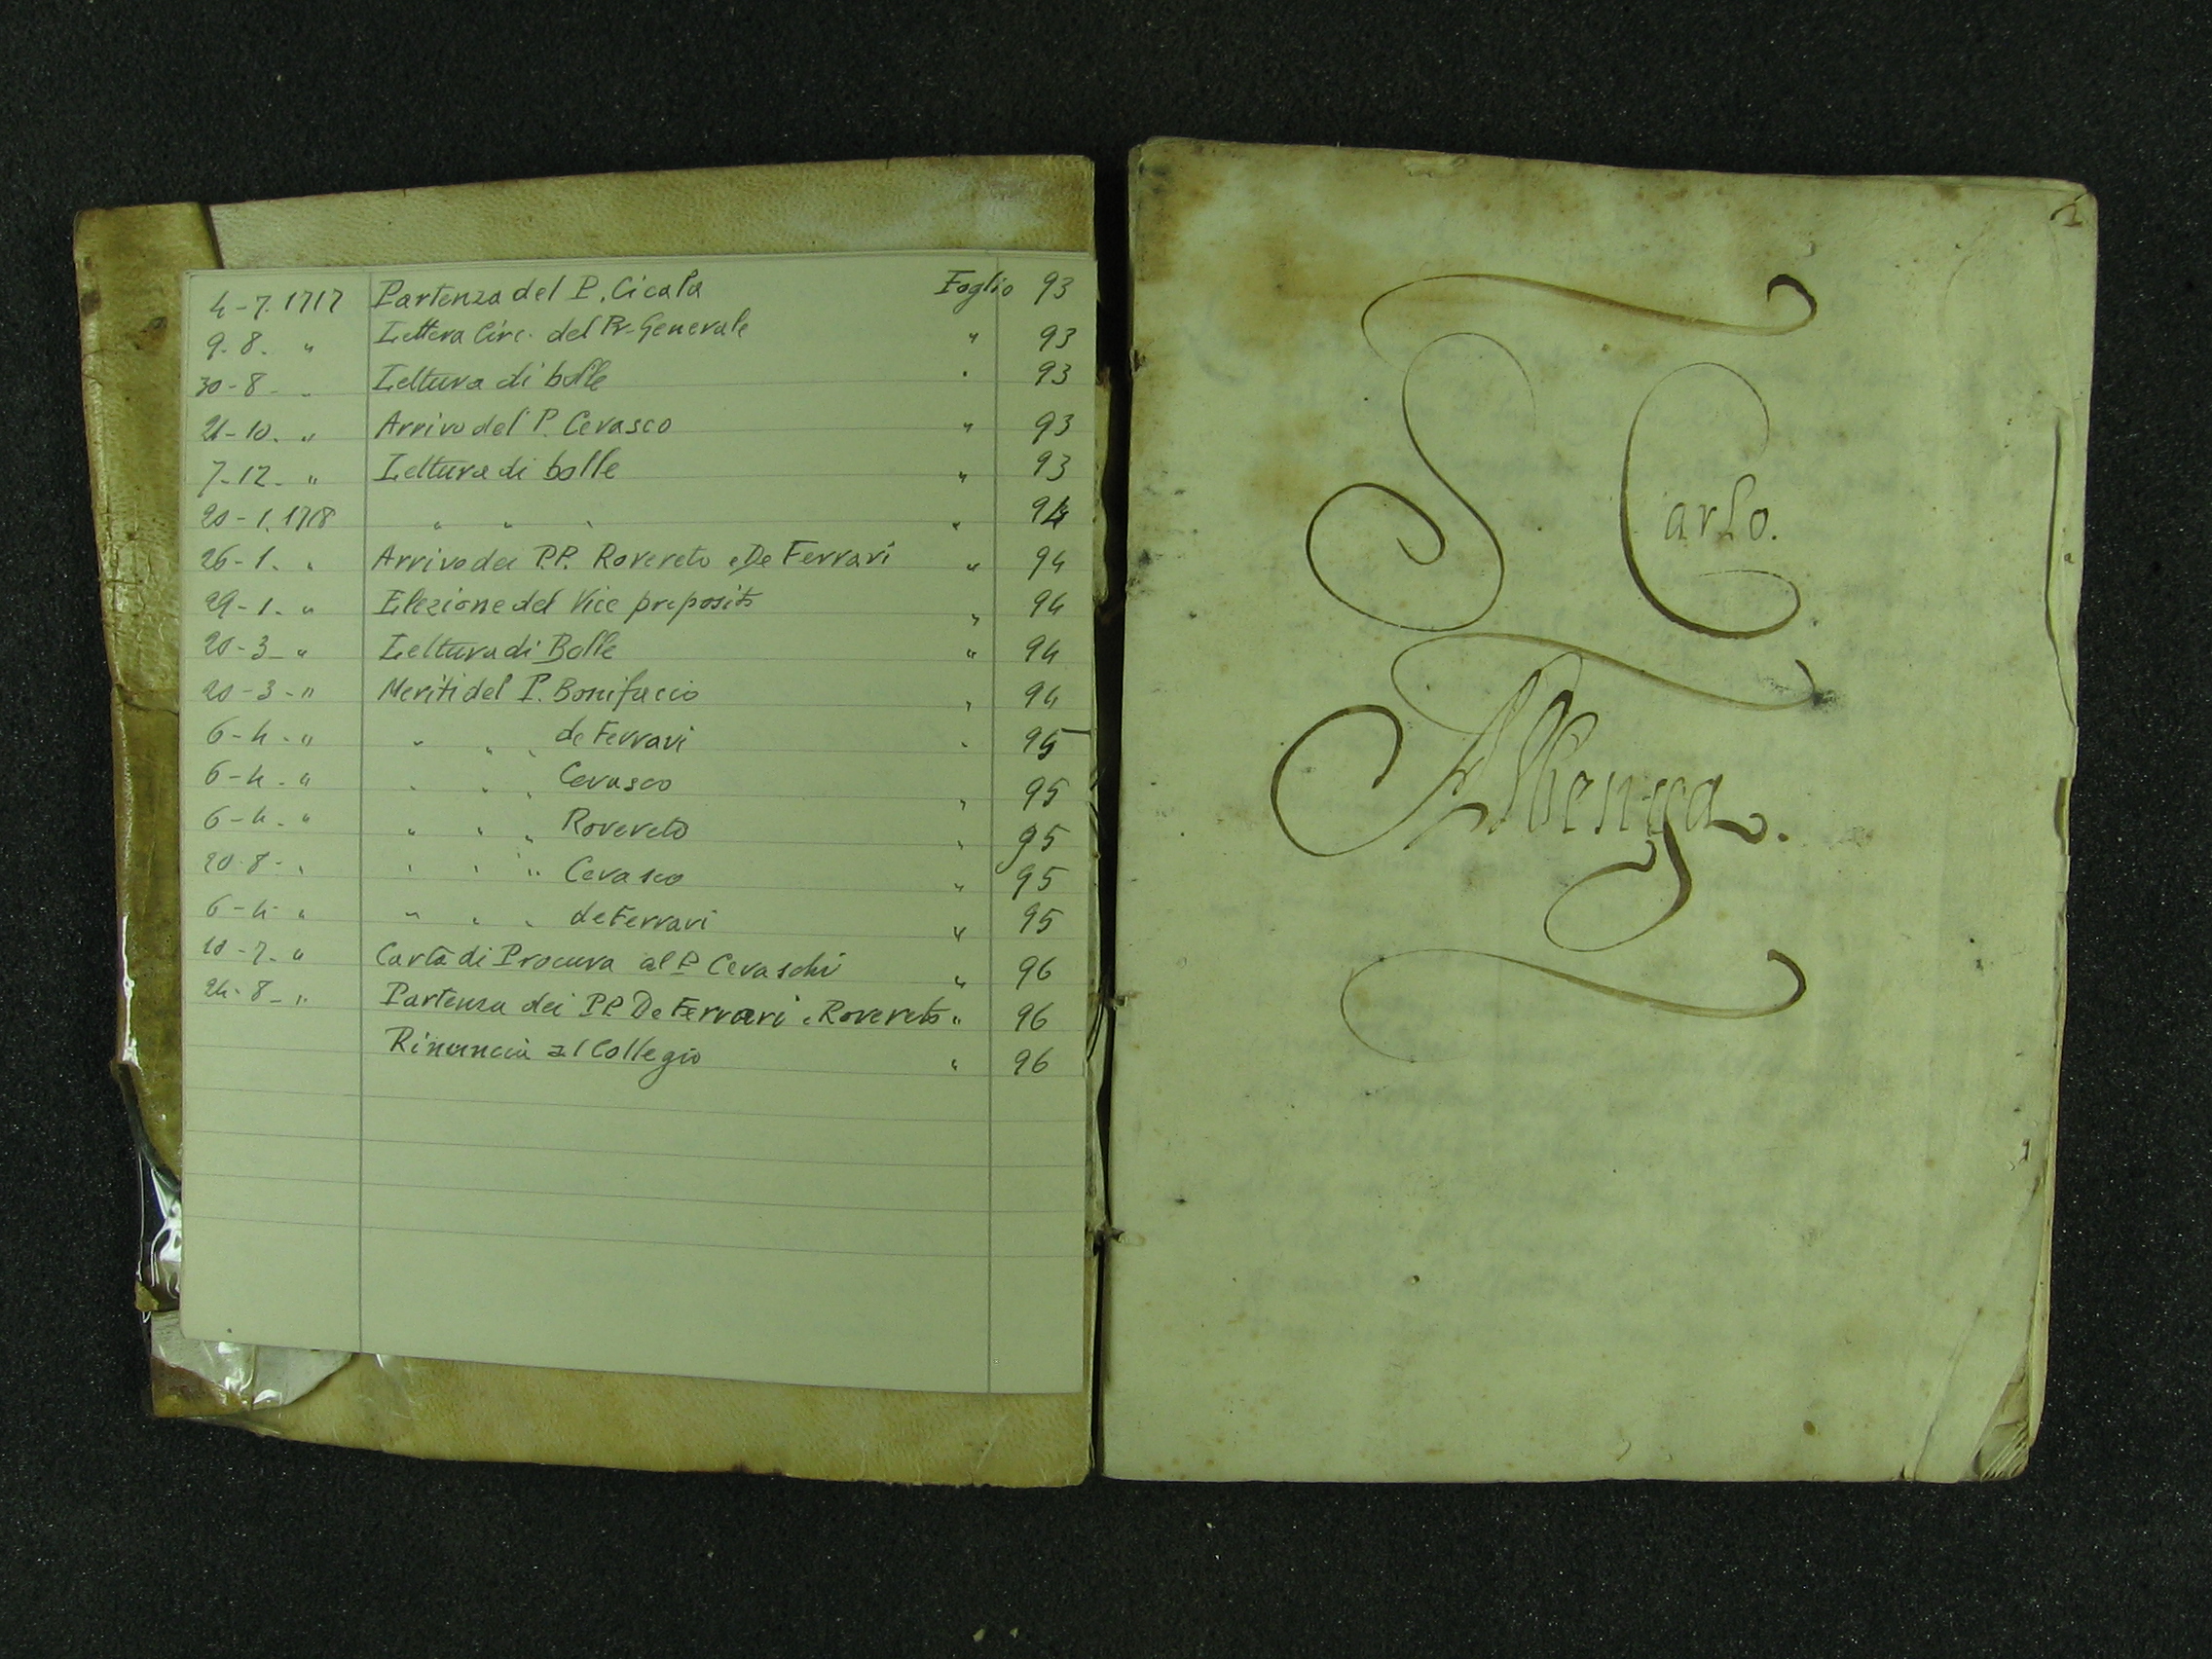 4-7. 1717 Partenza del P. Cicala Foglio 93
9-8. " Lettera Circ. del Pr. Generale " 93
30-8- " Lettura di bolle " 93
21-10. " Arrivo del P. Cevasco " 93
7-12- " Lettura di bolle " 93
20-1. 1718 " " " " 94
26-1. " Arrivo dei P.P. Rovereto e De Ferrari " 94
29-1- " Elezione del Vice preposito " 94
20-3- " Lettura di Bolle " 94
20-3-" Meriti del P. Bonifacio " 94
6-4-" " " " de Ferrari " 95
6-4-" " " " Cevasco " 95
6-4-" " " " Rovereto " 95
20-8-" " " " Cevasco " 95
6-4-" " " " de Ferrari " 95
10-7-" Carta di Procura al P. Cevaschi " 96
24-8-" Partenza dei P.P. De Ferrari e Rovereto " 96
Rinuncia al Collegio " 96
1
S Carlo.
Albenga.